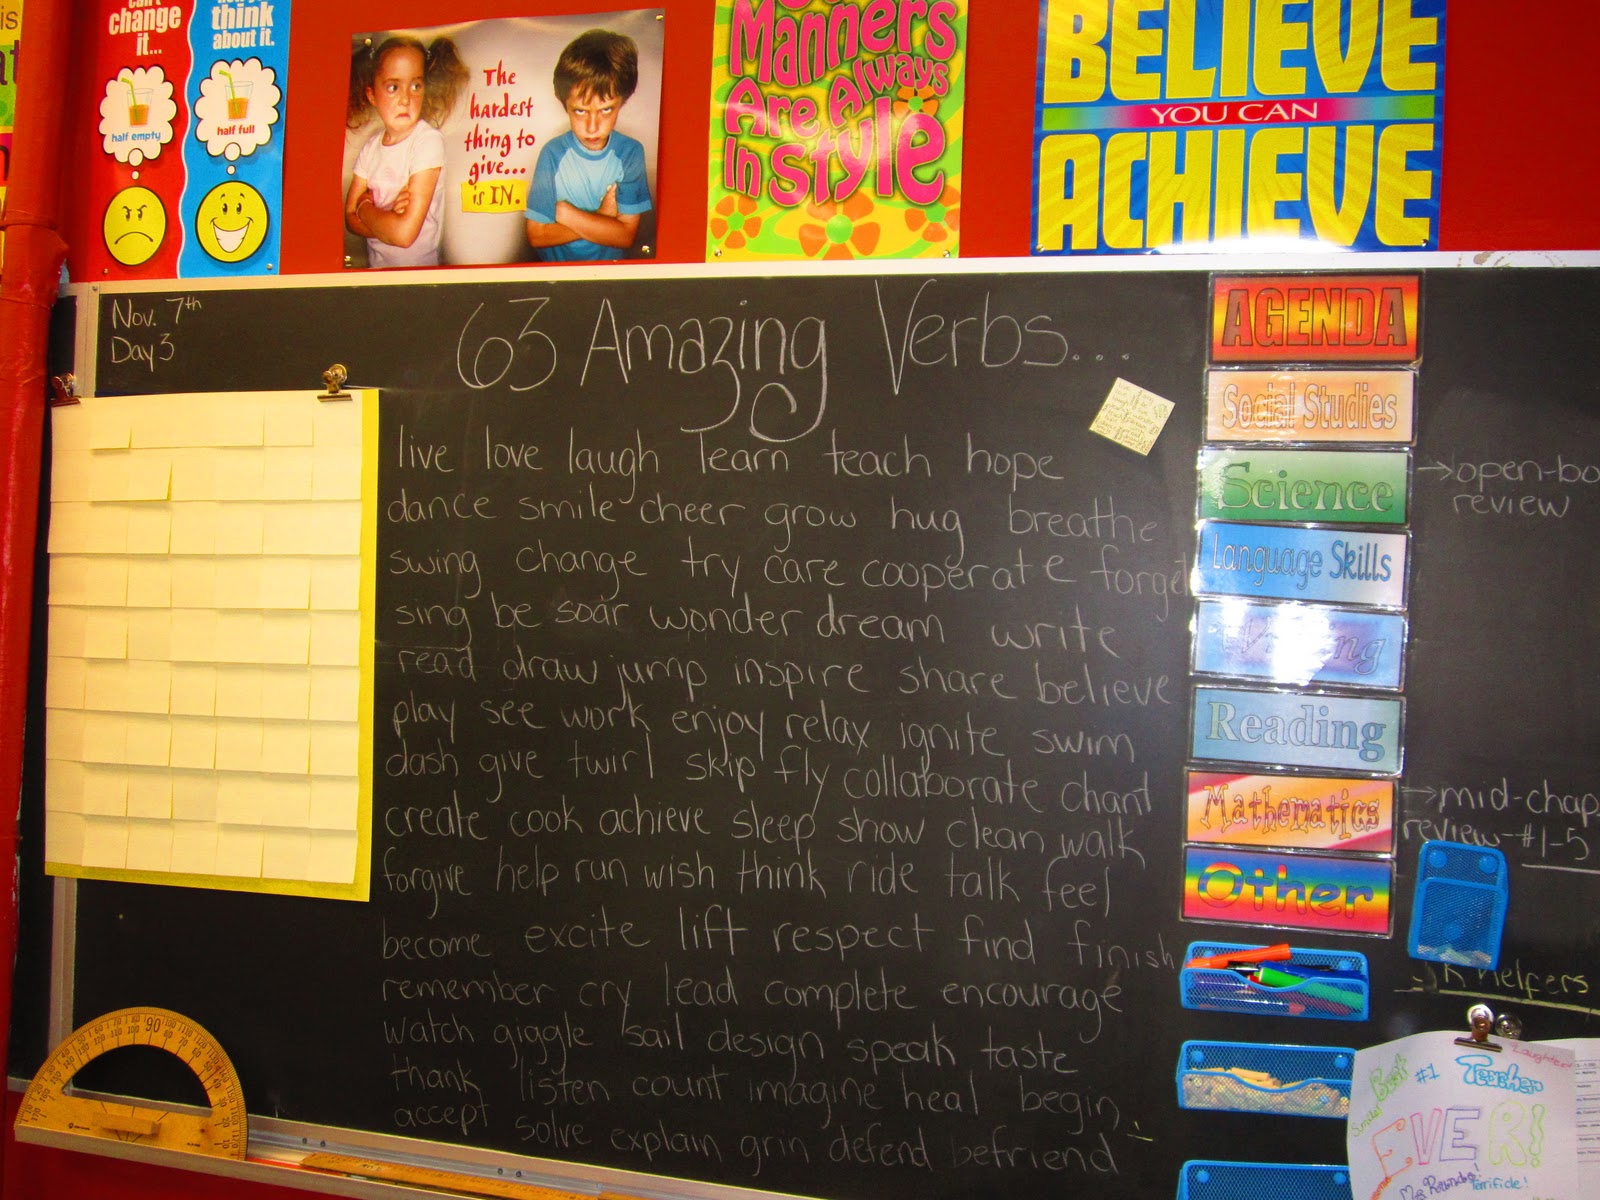 change
it...
think
about it.
half empty
half full
The
hardest
thing to
give...
is IN.
Manners
Are Always
In Style
BELIEVE
YOU CAN
ACHIEVE
Nov. 7th
Day 3
63 Amazing Verbs....
live love laugh learn teach hope
dance smile cheer grow hug breathe
swing change try care cooperate forget
sing be soar wonder dream write
read draw jump inspire share believe
play see work enjoy relax ignite swim
dash give twirl skip fly collaborate chant
create cook achieve sleep show clean walk
forgive help run wish think ride talk feel
become excite lift respect find finish
remember cry lead complete encourage
watch giggle sail design speak taste
thank listen count imagine heal begin
accept solve explain grin defend befriend
AGENDA
Social Studies
Science
→open-bo
review
Language Skills
Writing
Reading
Mathematics
→mid-chap
review-#1-5
Other
Helpers
90
#1
Teacher
Laughter
Best
EVER!
Terrific!